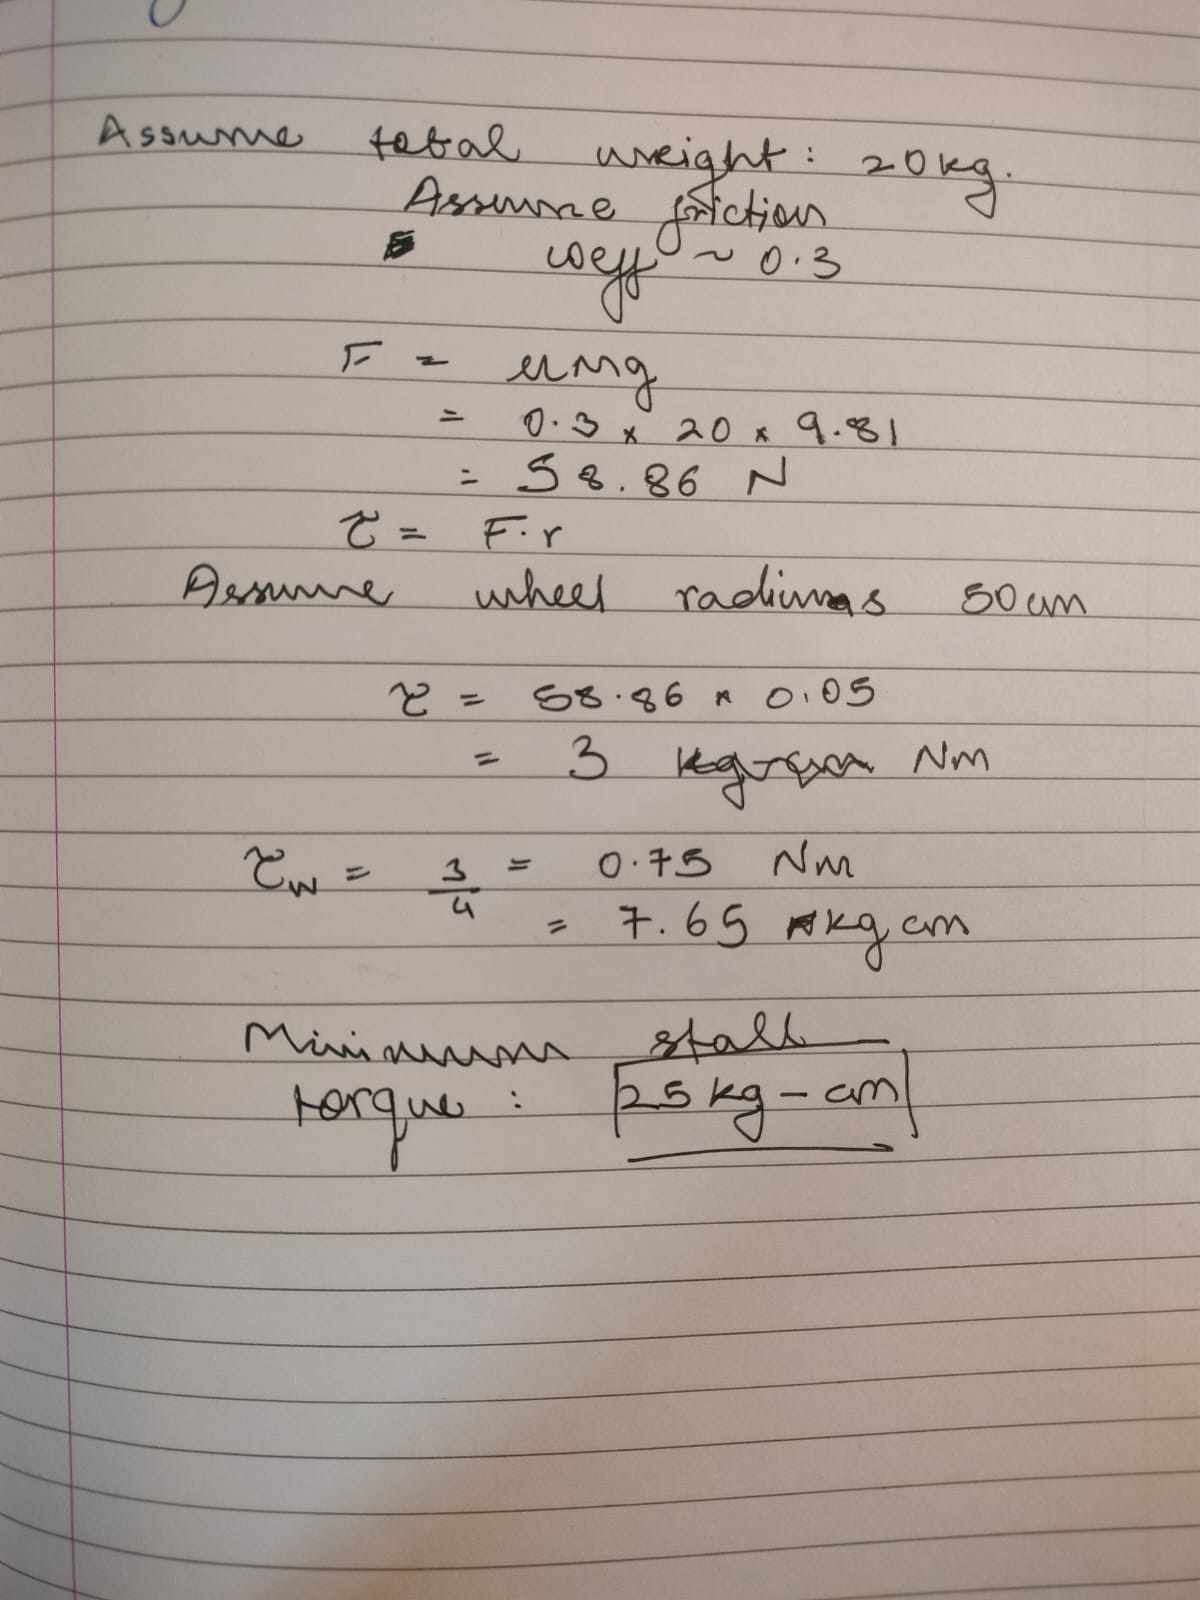 Assume total weight: 20kg.
Assume friction
coeff ~ 0.3
F = μmg
= 0.3 x 20 x 9.81
= 58.86 N
τ = F.r
Assume wheel radius 50cm
τ = 58.86 x 0.05
= 3 Nm
τw = 3/4 = 0.75 Nm
= 7.65 kg cm
Minimum stall
torque: 25 kg-cm